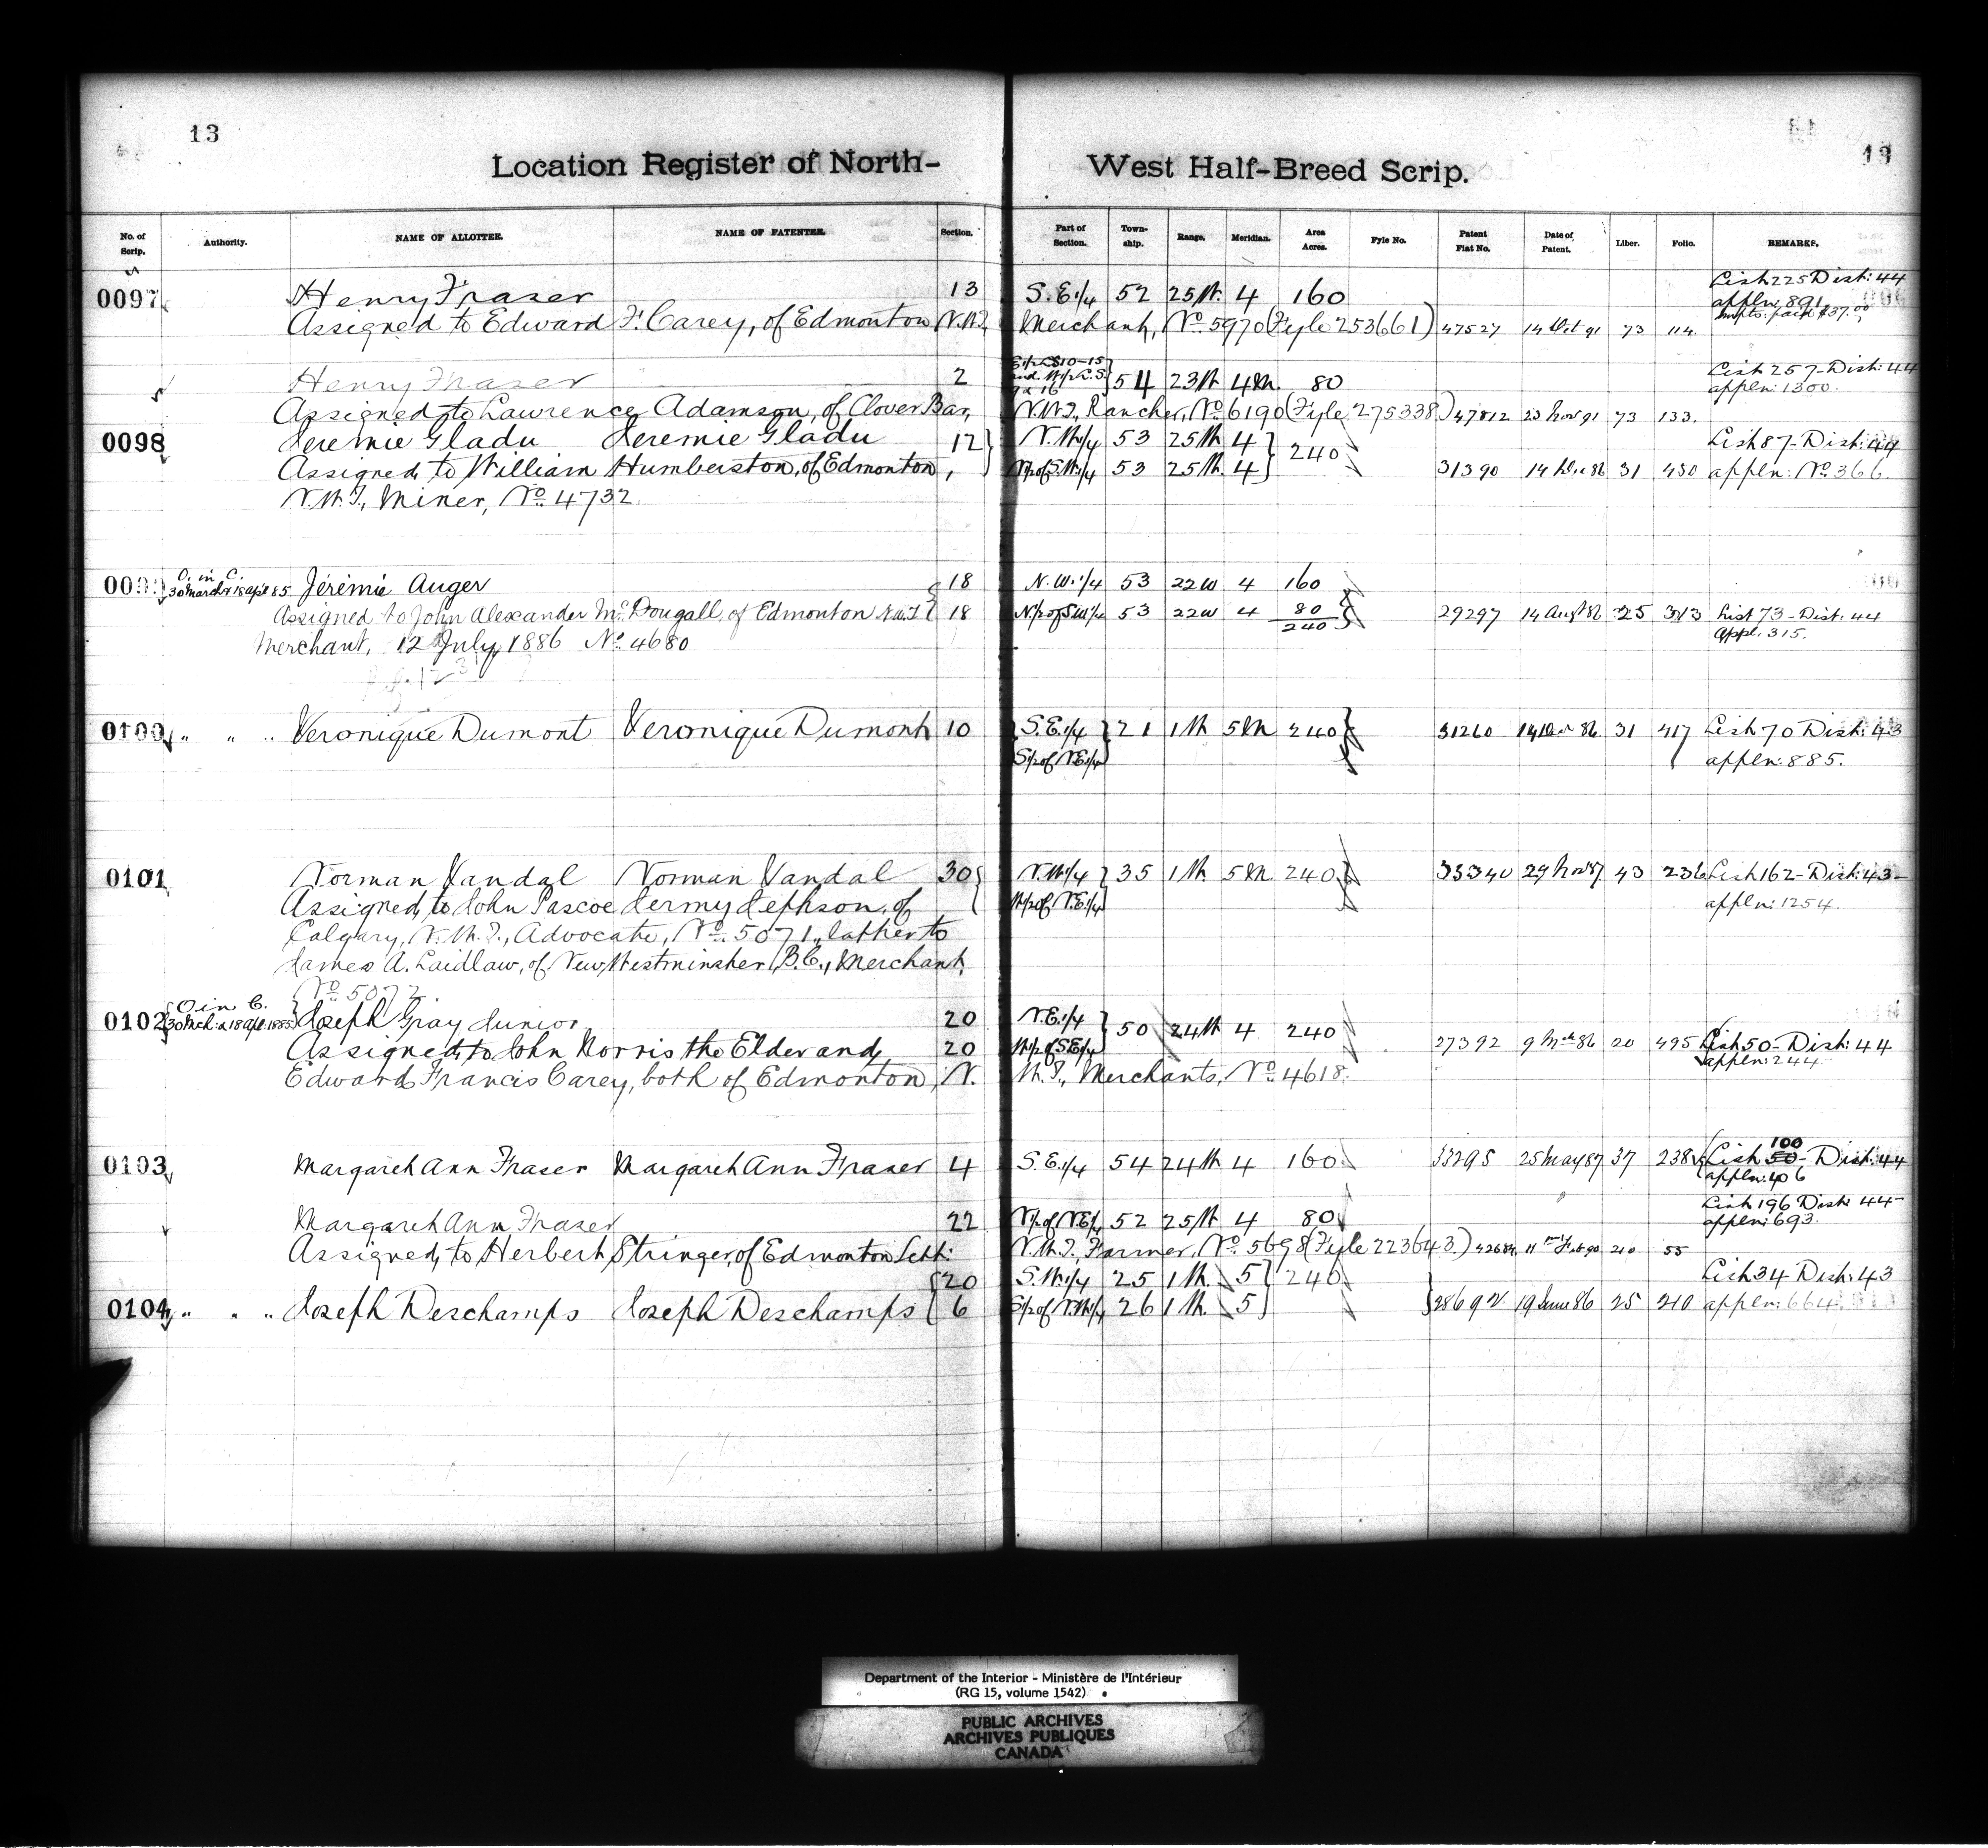 13
13
Location Register of North-West Half-Breed Scrip.
No. of Scrip. Authority. NAME OF ALLOTTEE. NAME OF PATENTEE. Section. Part of Section. Town-ship. Range. Meridian. Area Acres. Fyle No. Patent Fiat No. Date of Patent. Liber. Folio. REMARKS.
0097 Henry Fraser 13 S.E.1/4 52 25W. 4 160 List 225 Dist: 44
appln: 891
Impts. paid $37.00
Assigned to Edward F. Carey, of Edmonton N.W.T., Merchant, No. 5970 (Fyle 253661) 47527 14 Oct 91 73 114
Henry Fraser 2 E1/2 L.S. 10-15 and W1/2 L.S. 9 & 16 54 23W 4M. 80 List 257- Dist: 44
appln: 1300.
Assigned to Lawrence Adamson, of Clover Bar, N.W.T., Rancher, No. 6190 (Fyle 275338) 47812 23 Nov 91 73 133.
0098 Jeremie Gladu Jeremie Gladu 12 N.W.1/4 53 25W. 4 240 List 87- Dist: 44
Assigned to William Humberston, of Edmonton, N1/2 of S.W.1/4 53 25W. 4 31390 14 Dec 86 31 450 appln: No. 366
N.W.T., Miner, No. 4732.
O. in C.
30 March & 18 apl 85 Jérémie Auger 18 N.W.1/4 53 22W 4 160
Assigned to John Alexander McDougall, of Edmonton N.W.T 18 N1/2 of SW1/4 53 22W 4 80 29297 14 Augt 86 25 313 List 73- Dist. 44
240 Appl: 315.
Merchant, 12 July, 1886 No. 4680
0100 " " " Veronique Dumont Veronique Dumont 10 S.E.1/4 21 1W 5M 240 31260 14 Dec 86 31 417 List 70 Dist: 43
S1/2 of N.E.1/4 appln: 885.
0101 Norman Vandal Norman Vandal 30 N.W.1/4 35 1W. 5M 240 35340 29 Nov 87 43 236 List 162- Dist: 43-
Assigned to John Pascoe Jermy Jephson, of W1/2 of N.E.1/4 appln: 1254.
Calgary, N.W.T., Advocate, No. 5071, latter to
James A. Laidlaw, of New Westminster, B.C., Merchant,
No. 5072.
O in C.
0102 30 Mch. & 18 Apl. 1885 Joseph Gray Junior 20 N.E.1/4 50 24W 4 240
Assigned to John Norris the Elder and 20 W1/2 of S.E.1/4 27392 20 495 List 50- Dist: 44
appln: 244
Edward Francis Carey, both of Edmonton, N.W.T., Merchants, No. 4618.
0103 Margaret Ann Fraser Margaret Ann Fraser 4 S.E.1/4 54 24W 4 160 33295 25 May 87 37 238 List 50 100 - Dist: 44
appln: 406
Margaret Ann Fraser 22 N1/2 of N.E.1/4 52 25W 4 80 List 196 Dist: 44-
appln: 693.
Assigned to Herbert Stringer, of Edmonton Sett: N.W.T., Farmer, No. 5698 (Fyle 223643.) 42684 11 Feb 90 55
20 S.W.1/4 25 1W. 5 240 List 34 Dist: 43
0104 " " " Joseph Deschamps Joseph Deschamps 6 S1/2 of N.W.1/4 26 1W. 5 19 June 86 25 210 appln: 664
Department of the Interior - Ministère de l'Intérieur
(RG 15, volume 1542)
PUBLIC ARCHIVES
ARCHIVES PUBLIQUES
CANADA